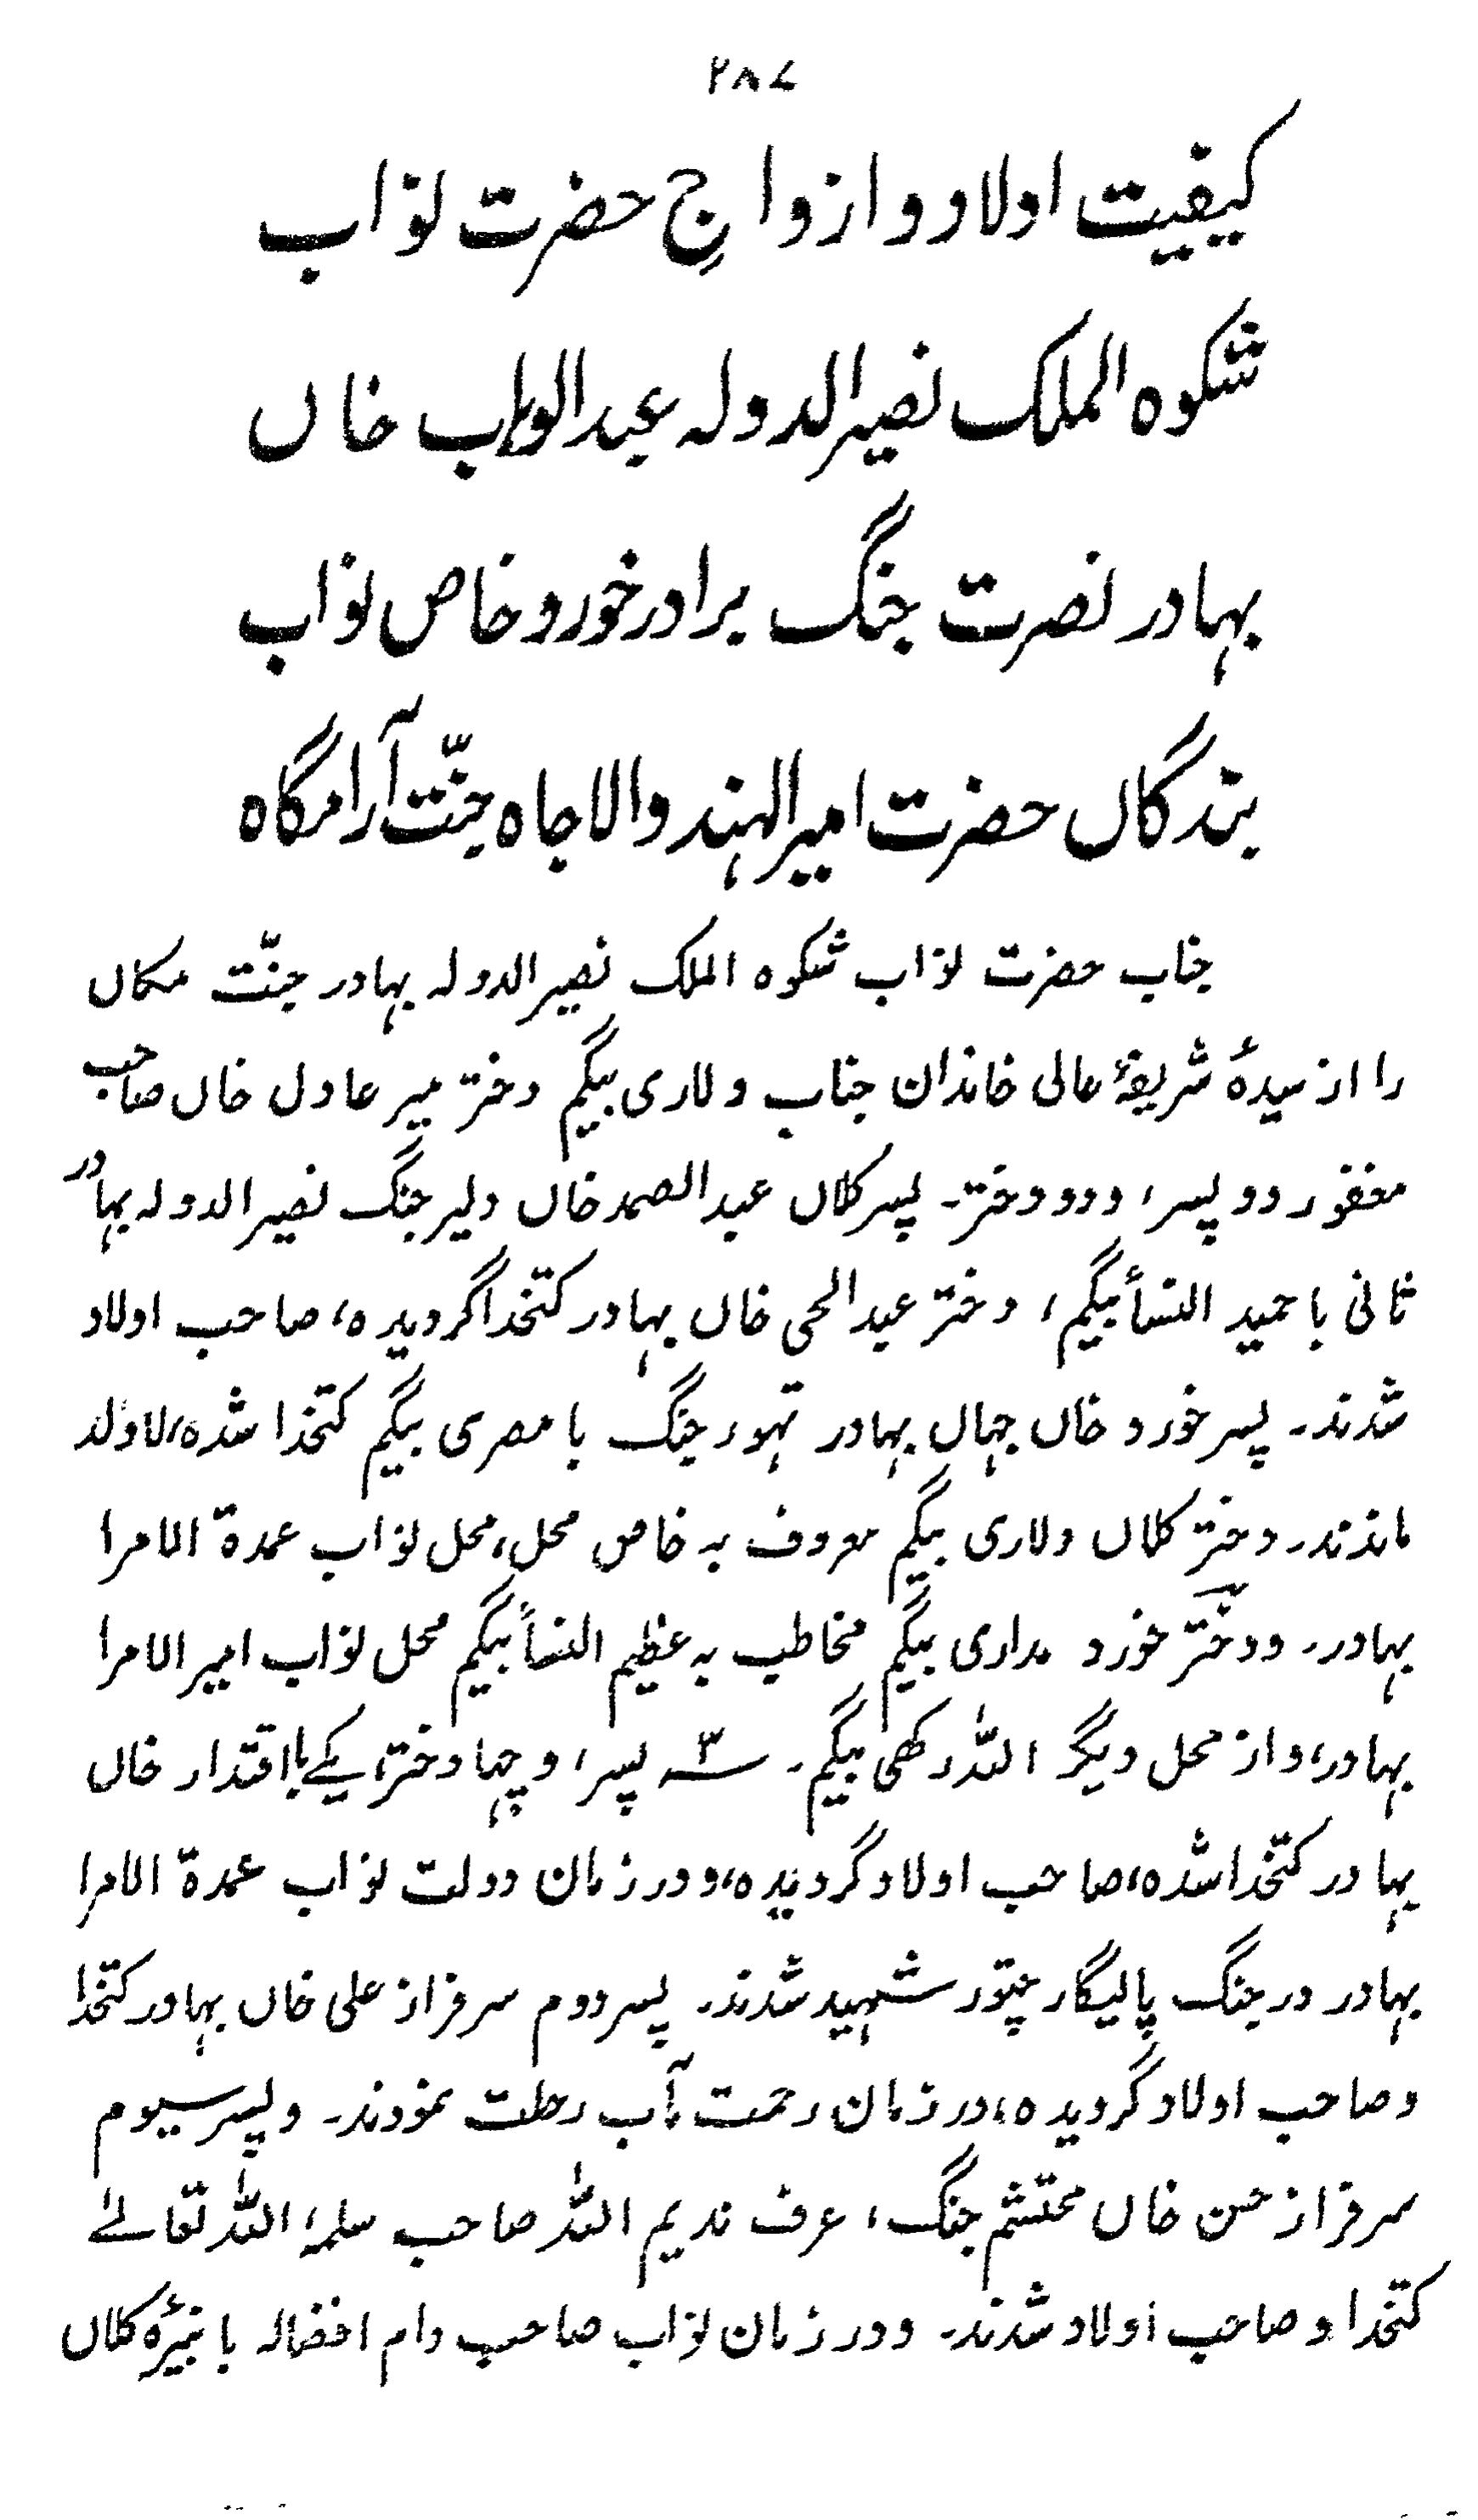 ۲۸۷
کیفیت اولاد و ازواجِ حضرت نواب
شکوہ الملک نصیر الدولہ عبدالوہاب خاں
بہادر نصرت جنگ برادر خورد خاص نواب
بندگاں حضرت امیر الہند والا جاہ جنّت آرامگاہ
جناب حضرت نواب شکوہ الملک نصیر الدولہ بہادر جنّت مکاں
را از سیدۂ شریفۂ عالی خاندان جناب ولاری بیگم دختر میر عادل خاں صاحب
مغفور دو پسر، ودو دختر۔ پسر کلاں عبدالصمد خاں دلیر جنگ نصیر الدولہ بہادر
ثانی با حمید النسأ بیگم، دختر عبدالحی خاں بہادر کتخدا گردیدہ، صاحب اولاد
شدند۔ پسر خورد خاں جہاں بہادر تہور جنگ با مصری بیگم کتخدا شدہ، لاولد
ماندند۔ دختر کلاں ولاری بیگم معروف بہ خاص محل، محل نواب عمدۃ الامرا
بہادر۔ ودختر خورد مداری بیگم مخاطب بہ عظیم النسأ بیگم محل نواب امیر الامرا
بہادر، واز محل دیگر اللہ رکھی بیگم۔ سہ ۳ پسر، وچہا دختر، یکے با اقتدار خاں
بہادر کتخدا شدہ، صاحب اولاد گردیدہ، ودر زمان دولت نواب عمدۃ الامرا
بہادر در جنگ پالیگار چتور شہید شدند۔ پسر دوم سرفراز علی خاں بہادر کتخدا
وصاحب اولاد گردیدہ، در زمان رحمت مآب رحلت نمودند۔ وپسر سیوم
سرفراز حسن خاں محتشم جنگ، عرف ندیم اللہ صاحب سلمہ، اللہ تعالےٰ
کتخدا و صاحب اولاد شدند۔ ودر زمان نواب صاحب دام افضالہ با نبیرۂ کلاں